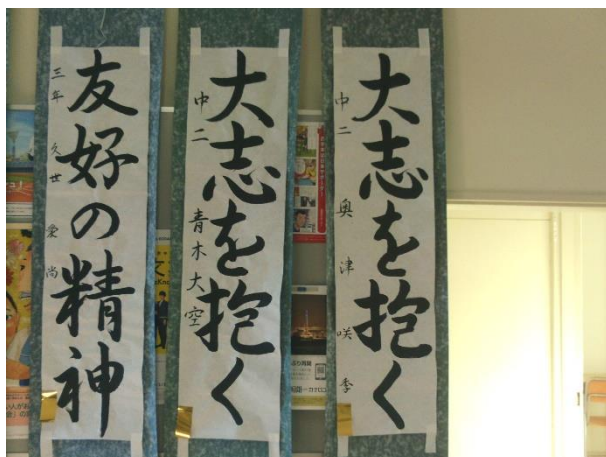 大志を抱く
中二 奥津咲季
大志を抱く
中二 青木大空
友好の精神
三年 久世愛尚